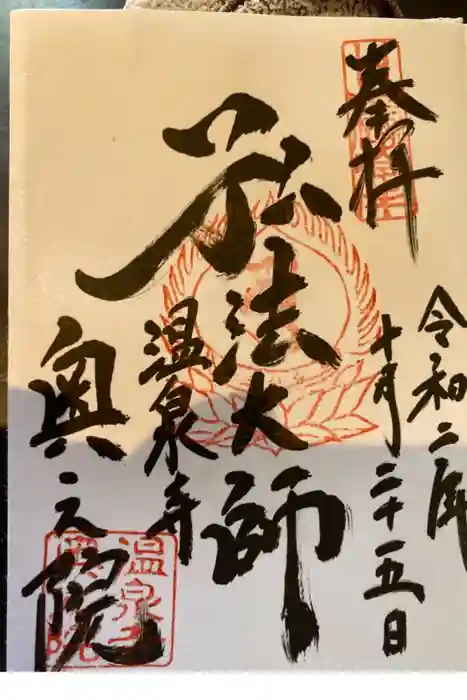 奉拝
令和二年
十月二十五日
弘法大師
温泉寺
奥之院
温泉寺
奥之院